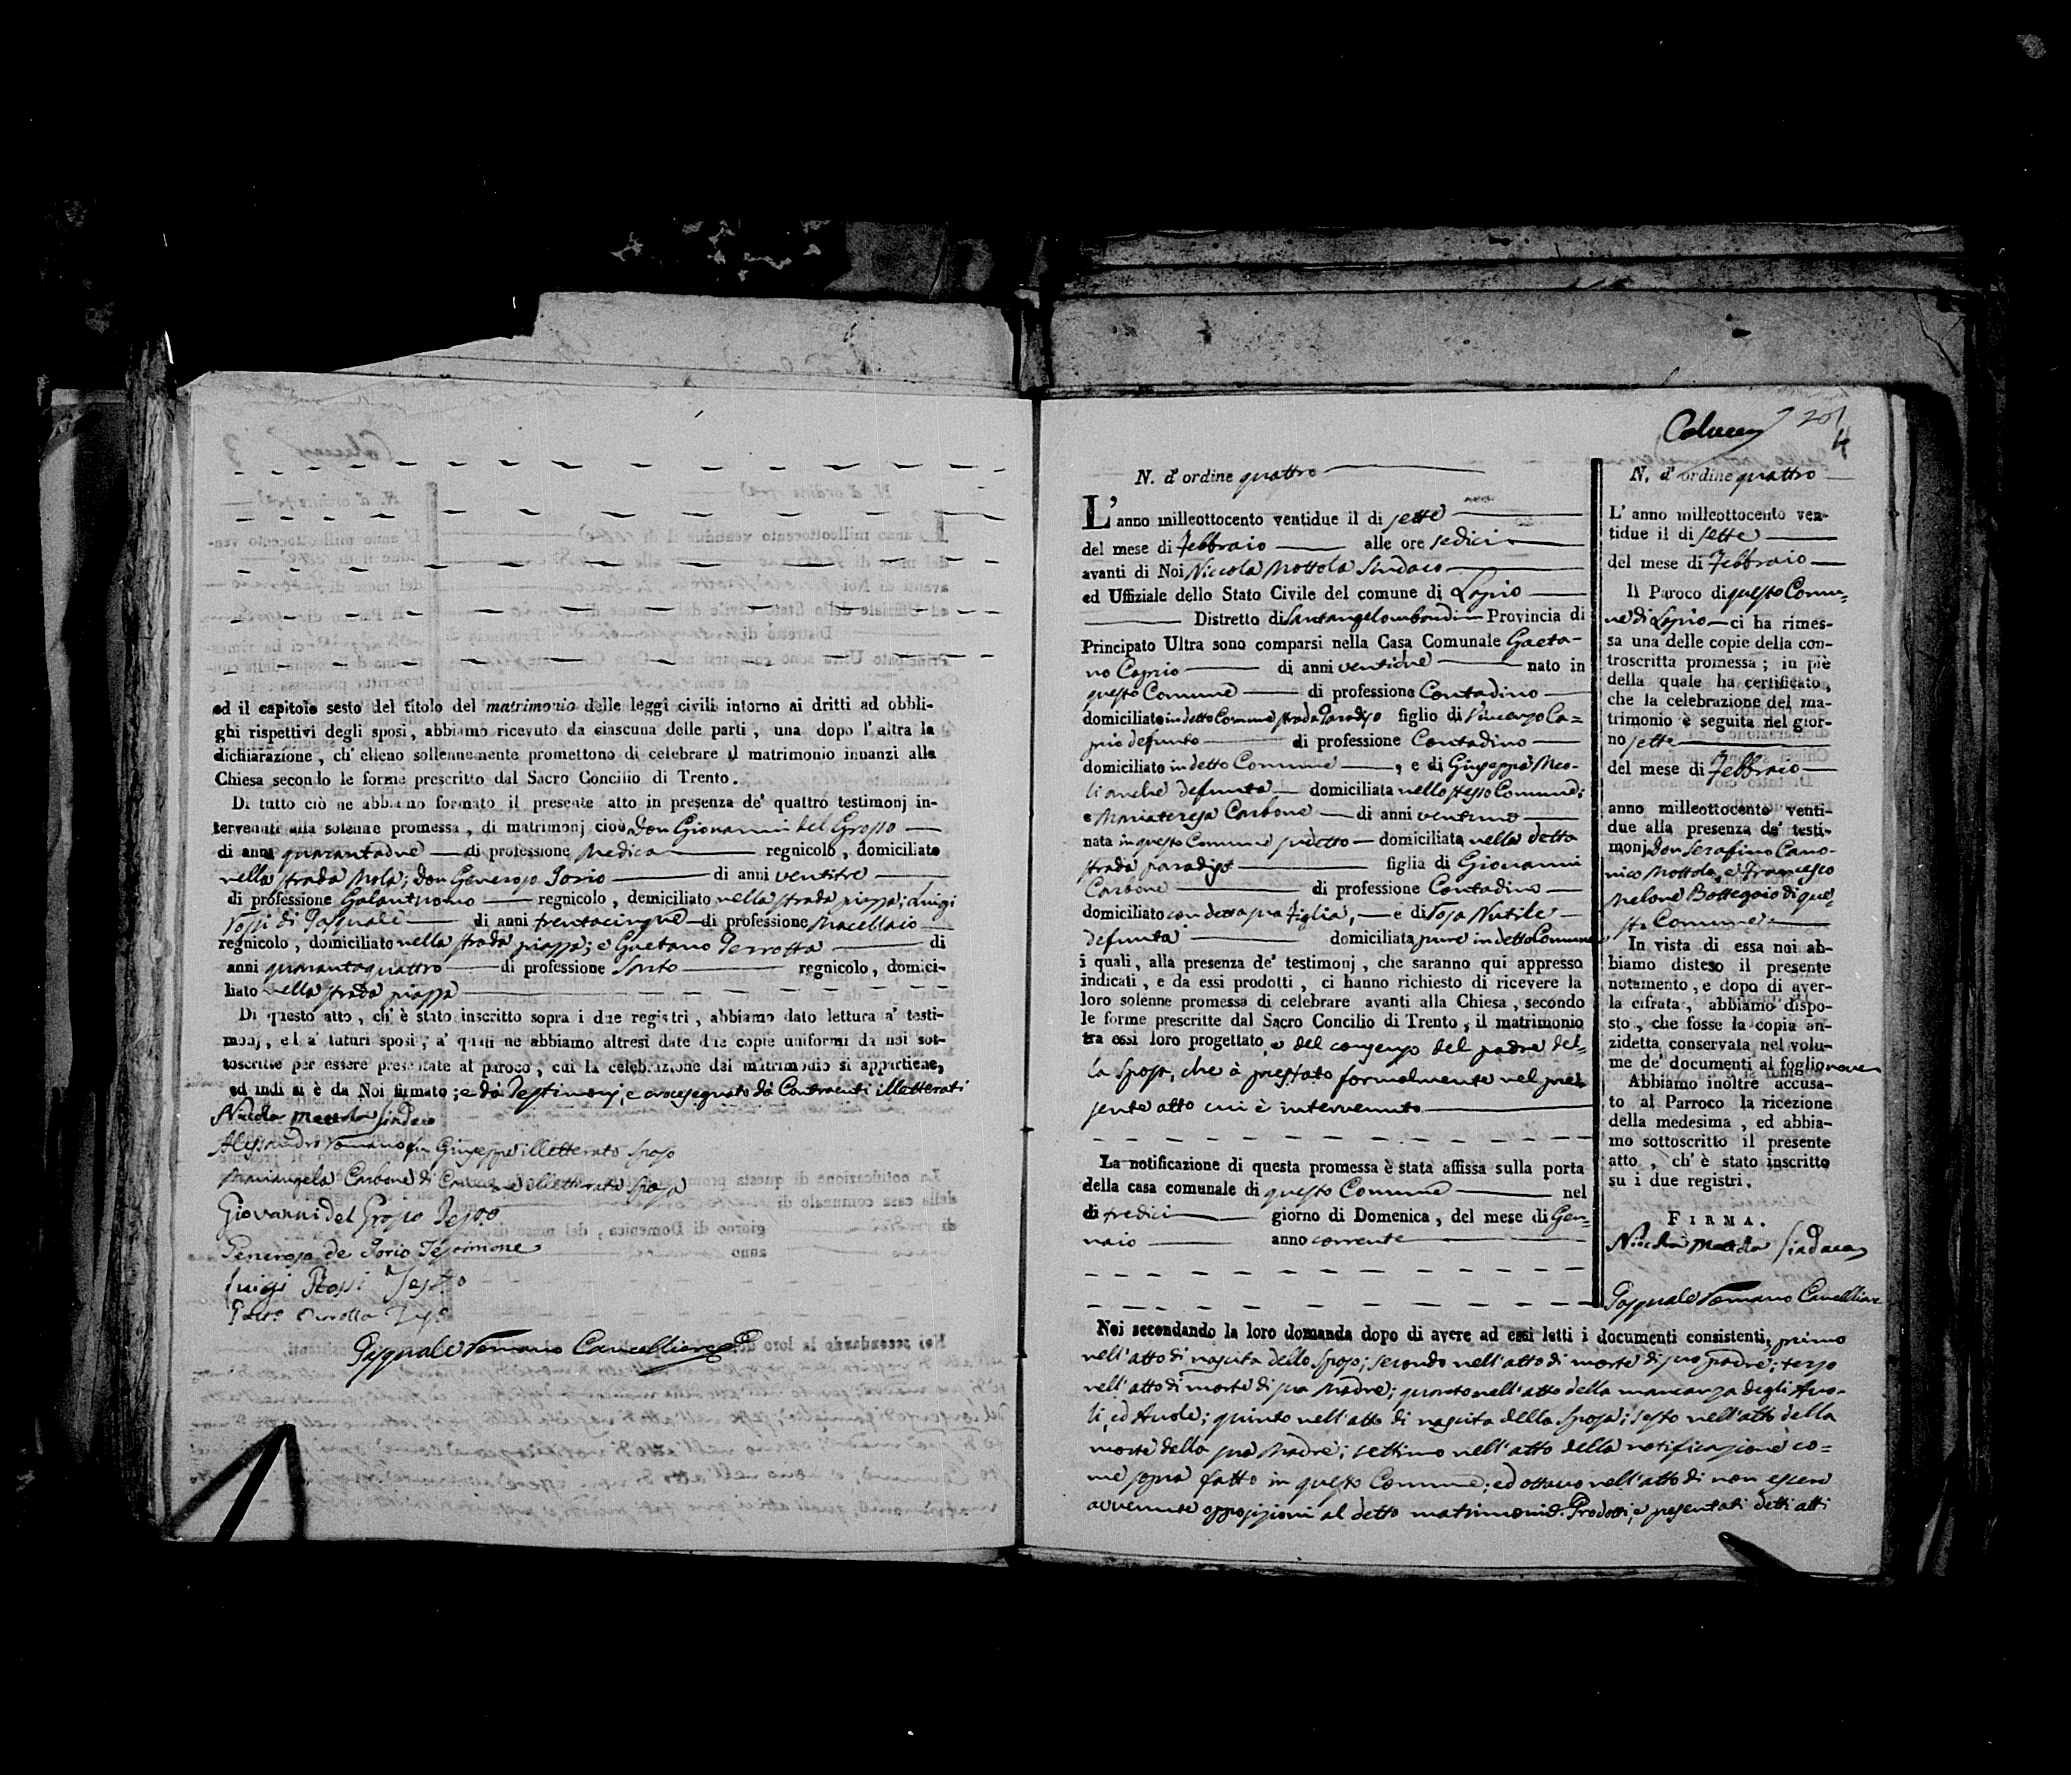 ed il capitolo sesto del titolo del matrimonio delle leggi civili intorno ai dritti ad obbli-
ghi rispettivi degli sposi, abbiamo ricevuto da ciascuna delle parti, una dopo l'altra la
dichiarazione, ch' elleno sollennemente promettono di celebrare il matrimonio innanzi alla
Chiesa secondo le forme prescritto dal Sacro Concilio di Trento.
Di tutto ciò ne abbiamo formato il presente atto in presenza de' quattro testimonj in-
tervenuti alla solenne promessa, di matrimonj cioè Don Giovanni del Grosso
di anni quarantadue di professione Medico regnicolo, domiciliato
nella strada Mola; Don Generoso Iorio di anni ventitre
di professione Galantuomo regnicolo, domiciliato nella strada piazza; Luigi
Rossi di Pasquale di anni trentacinque di professione Macellaio
regnicolo, domiciliato nella strada piazza; e Gaetano Perrotta di
anni quarantaquattro di professione Sarto regnicolo, domici-
liato nella strada piazza
Di questo atto, ch' è stato inscritto sopra i due registri, abbiamo dato lettura a' testi-
monj, ed a' futuri sposi, a' quali ne abbiamo altresì date due copie uniformi da noi sot-
toscritte per essere presentate al paroco, cui la celebrazione del matrimonio si appartiene,
ed indi si è da Noi firmato; e da Testimonj, e crocesegnato da Contraenti illetterati
Nicola Mottola Sindaco
Alessandro Romano fu Giuseppe illetterato Sposo
Mariangela Carbone di illetterata Sposa
Giovanni del Grosso Test.o
Generoso de Iorio Testimone
Luigi Rossi Test.o
Gaet.o Perrotta Test.o
Pasquale Romano Cancelliere
Colucci 201
4
N. d' ordine quattro
L' anno milleottocento ventidue il di sette
del mese di Febbraio alle ore sedici
avanti di Noi Niccola Mottola Sindaco
ed Uffiziale dello Stato Civile del comune di Lapio
Distretto di Santangelolombardi Provincia di
Principato Ultra sono comparsi nella Casa Comunale Gaeta-
no Caprio di anni ventidue nato in
questo Comune di professione Contadino
domiciliato in detto Comune strada Paradiso figlio di Vincenzo Ca=
prio defunto di professione Contadino
domiciliato in detto Comune, e di Giuseppa Meo-
li anche defunta domiciliata nello stesso Comune;
e Mariateresa Carbone di anni ventuno
nata in questo Comune sudetto domiciliata nella detta
strada paradiso figlia di Giovanni
Carbone di professione Contadino
domiciliato con detta sua figlia, e di Rosa Nutile
defunta domiciliata pure in detto Comune
i quali, alla presenza de' testimonj, che saranno qui appresso
indicati, e da essi prodotti, ci hanno richiesto di ricevere la
loro solenne promessa di celebrare avanti alla Chiesa, secondo
le forme prescritte dal Sacro Concilio di Trento, il matrimonio
tra essi loro progettato, e del consenso del padre del=
la sposa, che à prestato formalmente nel pre=
sente atto cui è intervenuto
La notificazione di questa promessa è stata affissa sulla porta
della casa comunale di questo Comune nel
di tredici giorno di Domenica, del mese di Gen=
naio anno corrente
Noi secondando la loro domanda dopo di avere ad essi letti i documenti consistenti, primo
nell'atto di nascita dello sposo; secondo nell'atto di morte di suo padre; terzo
nell'atto di morte di sua Madre; quarto nell'atto della mancanza degli Avo-
li, ed Avole; quinto nell'atto di nascita della Sposa; sesto nell'atto della
morte della sua Madre; settimo nell'atto della notificazione co=
me sopra fatto in questo Comune; ed ottavo nell'atto di non essere
avvenute opposizioni al detto matrimonio. Prodotti, e presentati detti atti
N. d' ordine quattro
L' anno milleottocento ven-
tidue il di sette
del mese di Febbraio
Il Paroco di questo Comu=
ne di Lapio ci ha rimes-
sa una delle copie della con-
troscritta promessa; in piè
della quale ha certificato,
che la celebrazione del ma-
trimonio è seguita nel gior-
no sette
del mese di Febbraio
anno milleottocento venti-
due alla presenza de' testi-
monj Don Serafino Cano-
nico Mottola, e Francesco
Melone Bottegaio di que=
sto Comune
In vista di essa noi ab-
biamo disteso il presente
notamento, e dopo di aver-
la cifrata, abbiamo dispo-
sto, che fosse la copia an-
zidetta conservata nel volu-
me de' documenti al foglio nove
Abbiamo inoltre accusa-
to al Parroco la ricezione
della medesima, ed abbia-
mo sottoscritto il presente
atto, ch' è stato inscritto
su i due registri.
FIRMA.
Nicola Mottola Sindaco
Pasquale Romano Cancelliere